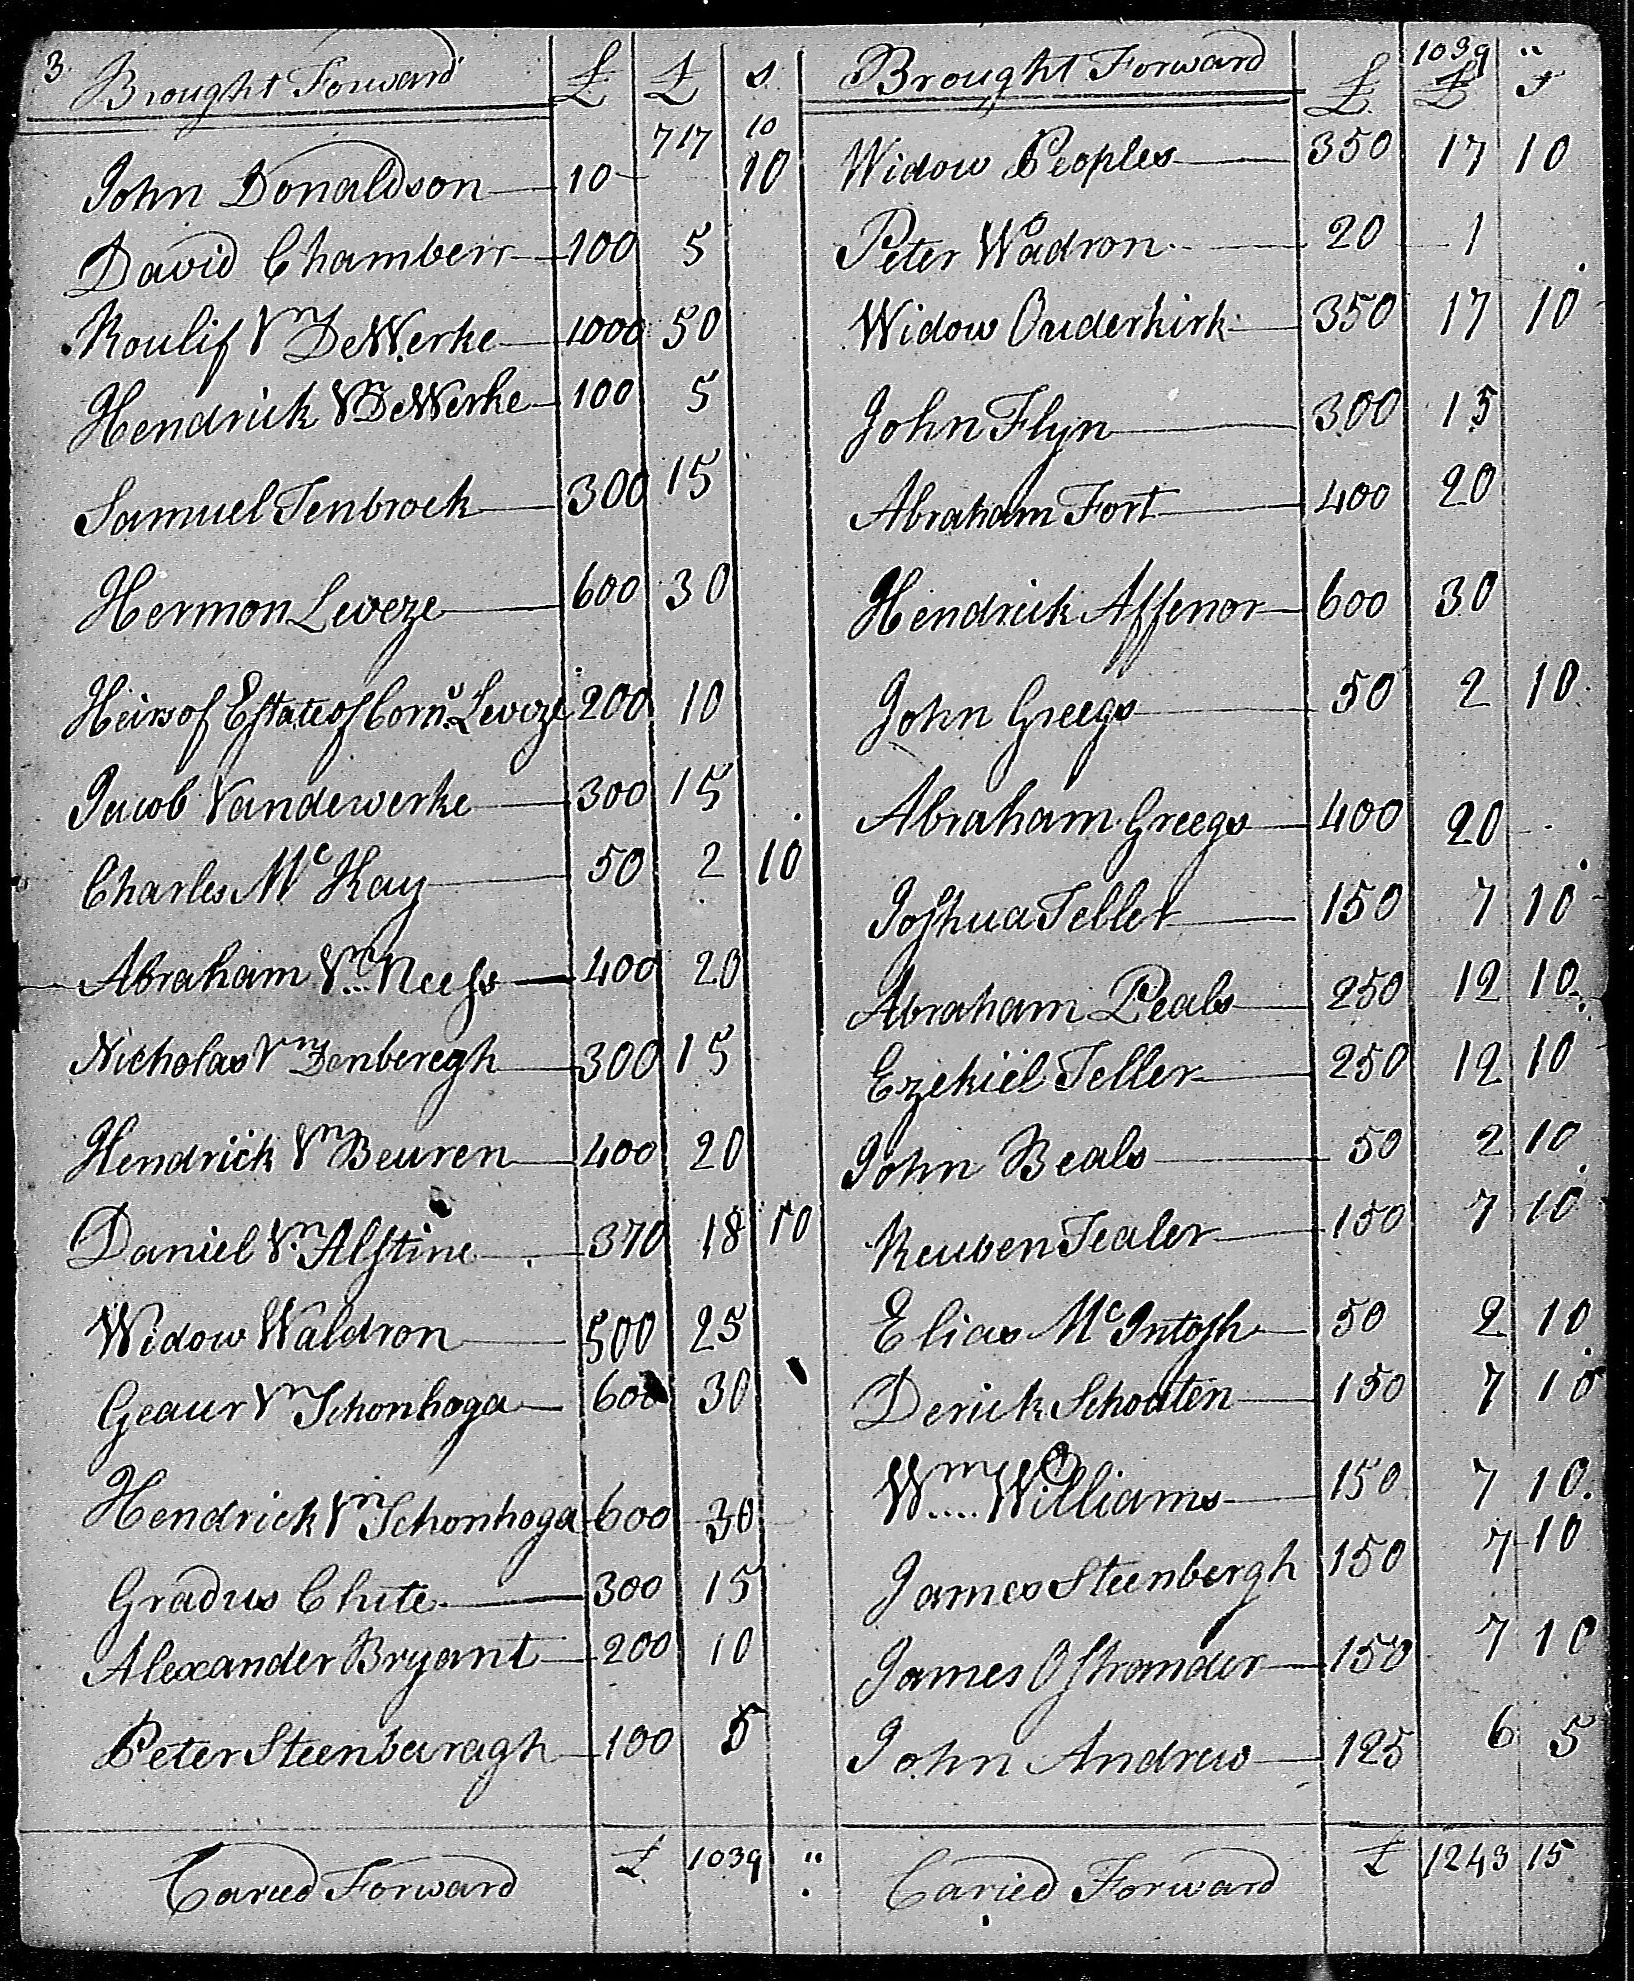 3 Brought Forward £ £ s
717 10
John Donaldson 10 10
David Chamberr 100 5
Roulif Vn DeWerke 1000 50
Hendrick Vn DeWerke 100 5
Samuel Tenbroek 300 15
Hermon Leveze 600 30
Heirs of Estate of Corns Leveze 200 10
Jacob Vandewerke 300 15
Charles Mc Kay 50 2 10
Abraham Vn Neess 400 20
Nicholas Vn Denberegh 300 15
Hendrick Vn Beuren 400 20
Daniel Vn Alstine 370 18 10
Widow Waldron 500 25
Geaur Vn Schonhoga 600 30
Hendrick Vn Schonhoga 600 30
Gradus Chute 300 15
Alexander Bryant 200 10
Peter Steenburagh 100 5
Caried Forward £ 1039 "
1039 "
Brought Forward £ £ s
Widow Peoples 350 17 10
Peter Wadron 20 1
Widow Ouderkirk 350 17 10
John Flyn 300 15
Abraham Fort 400 20
Hendrick Affenor 600 30
John Greegs 50 2 10
Abraham Greegs 400 20
Joshua Teller 150 7 10
Abraham Peals 250 12 10
Ezekiel Teller 250 12 10
John Beals 50 2 10
Reuben Tealer 150 7 10
Elias McIntosh 50 2 10
Derick Schouten 150 7 10
Wm Williams 150 7 10
James Steenbergh 150 7 10
James Ostrander 150 7 10
John Andrew 125 6 5
Caried Forward £ 1243 15